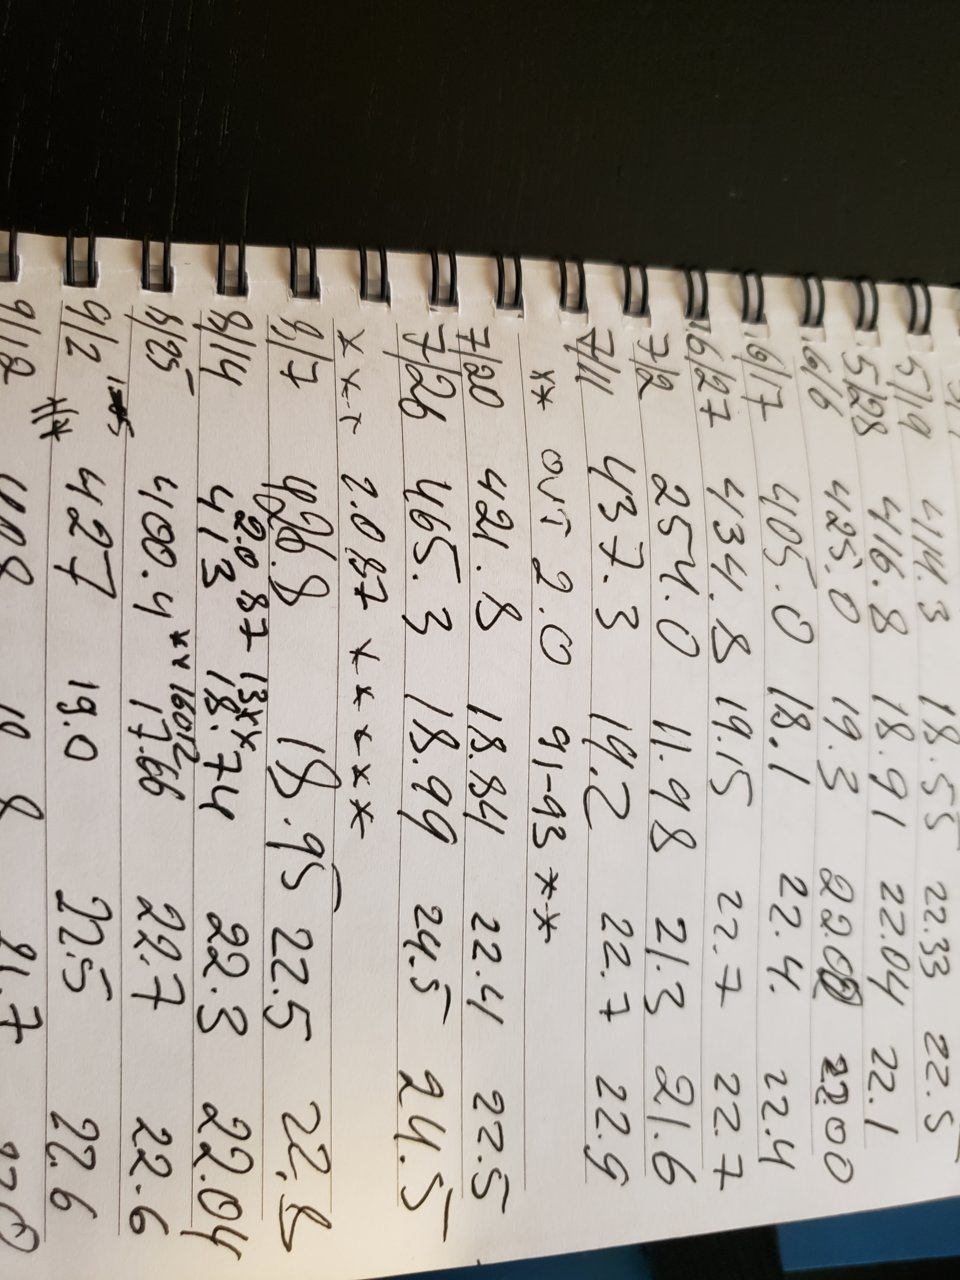 5/19 414.3 18.55 22.33 22.5
5/28 416.8 18.91 22.04 22.1
6/6 425.0 19.3 22.00 22.00
6/17 405.0 18.1 22.4 22.4
6/27 434.8 19.15 22.7 22.7
7/2 254.0 11.98 21.3 21.6
7/11 437.3 19.2 22.7 22.9
** 2.0 91-93 **
7/20 421.8 18.84 22.4 22.5
7/26 465.3 18.99 24.5 24.5
*** 2.087 *****
8/7 426.8 18.95 22.5 22.8
2.087 13**
8/14 413 18.74 22.3 22.04
8/25 400.4 ** 17.66 22.7 22.6
9/2 427 19.0 22.5 22.6
9/12 408